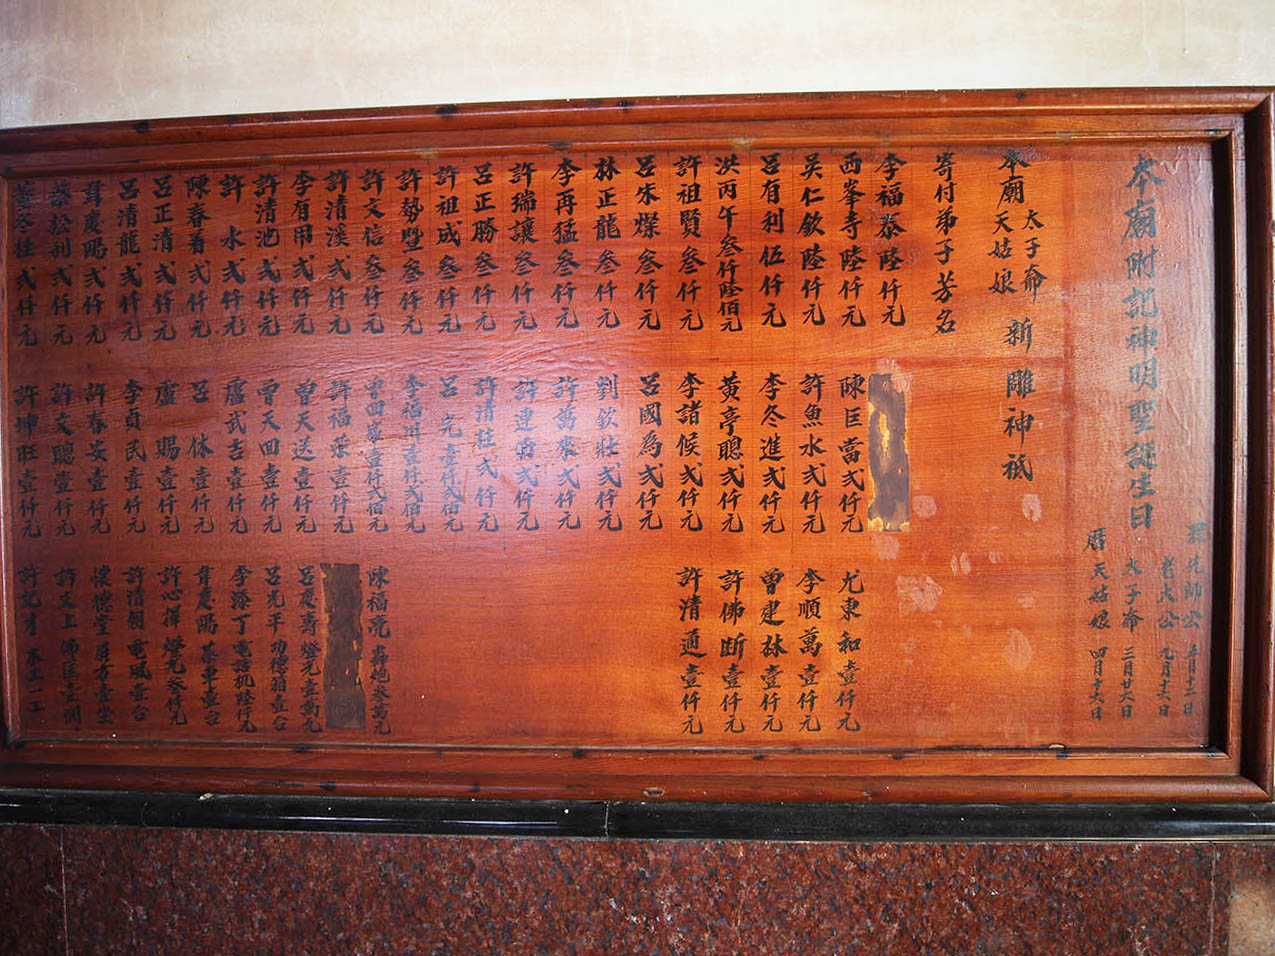 本廟附記神明聖誕生日
祖師公 五月十二日
老大公 九月十六日
太子爺 三月廿六日
曆天姑娘 四月十六日
本廟 太子爺 天姑娘 新雕神祇
寄付弟子芳名
李福泰陸仟元
西峯寺陸仟元
吳仁欽陸仟元
呂有利伍仟元
洪丙午叁仟陸佰元
許祖賢叁仟元
呂朱燦叁仟元
林正龍叁仟元
李再猛叁仟元
許瑞讓叁仟元
呂正勝叁仟元
許祖成叁仟元
許勢壆叁仟元
許文信叁仟元
許清溪弍仟元
李有用弍仟元
許清池弍仟元
許水弍仟元
陳春看弍仟元
呂正清弍仟元
呂清龍弍仟元
龔慶賜弍仟元
蔡松利弍仟元
董冬桂弍仟元
陳匡當弍仟元
許魚水弍仟元
李冬進弍仟元
黃亭聰弍仟元
李諸候弍仟元
呂國為弍仟元
劉欽壯弍仟元
許萬來弍仟元
許建南弍仟元
許清莊弍仟元
呂元壹仟弍佰元
李福川壹仟弍佰元
曾田壹仟弍佰元
許福榮壹仟元
曾天送壹仟元
曾天回壹仟元
盧武吉壹仟元
呂休壹仟元
盧賜壹仟元
李貞民壹仟元
許春安壹仟元
許文聰壹仟元
許坤旺壹仟元
尤東和壹仟元
李順萬壹仟元
曾建林壹仟元
許佛斷壹仟元
許清通壹仟元
陳福亮 叁萬元
呂慶壽燈光壹萬元
呂光平功德箱壹台
李添丁電話机陸仟元
龔慶賜 車壹台
許心擇燈光叁仟元
許清朝電風壹台
懷德堂 壹坐
許文工佛匡壹個
許記才木工一工